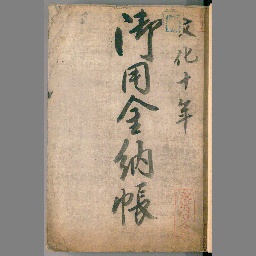 文化十年
御用金納帳